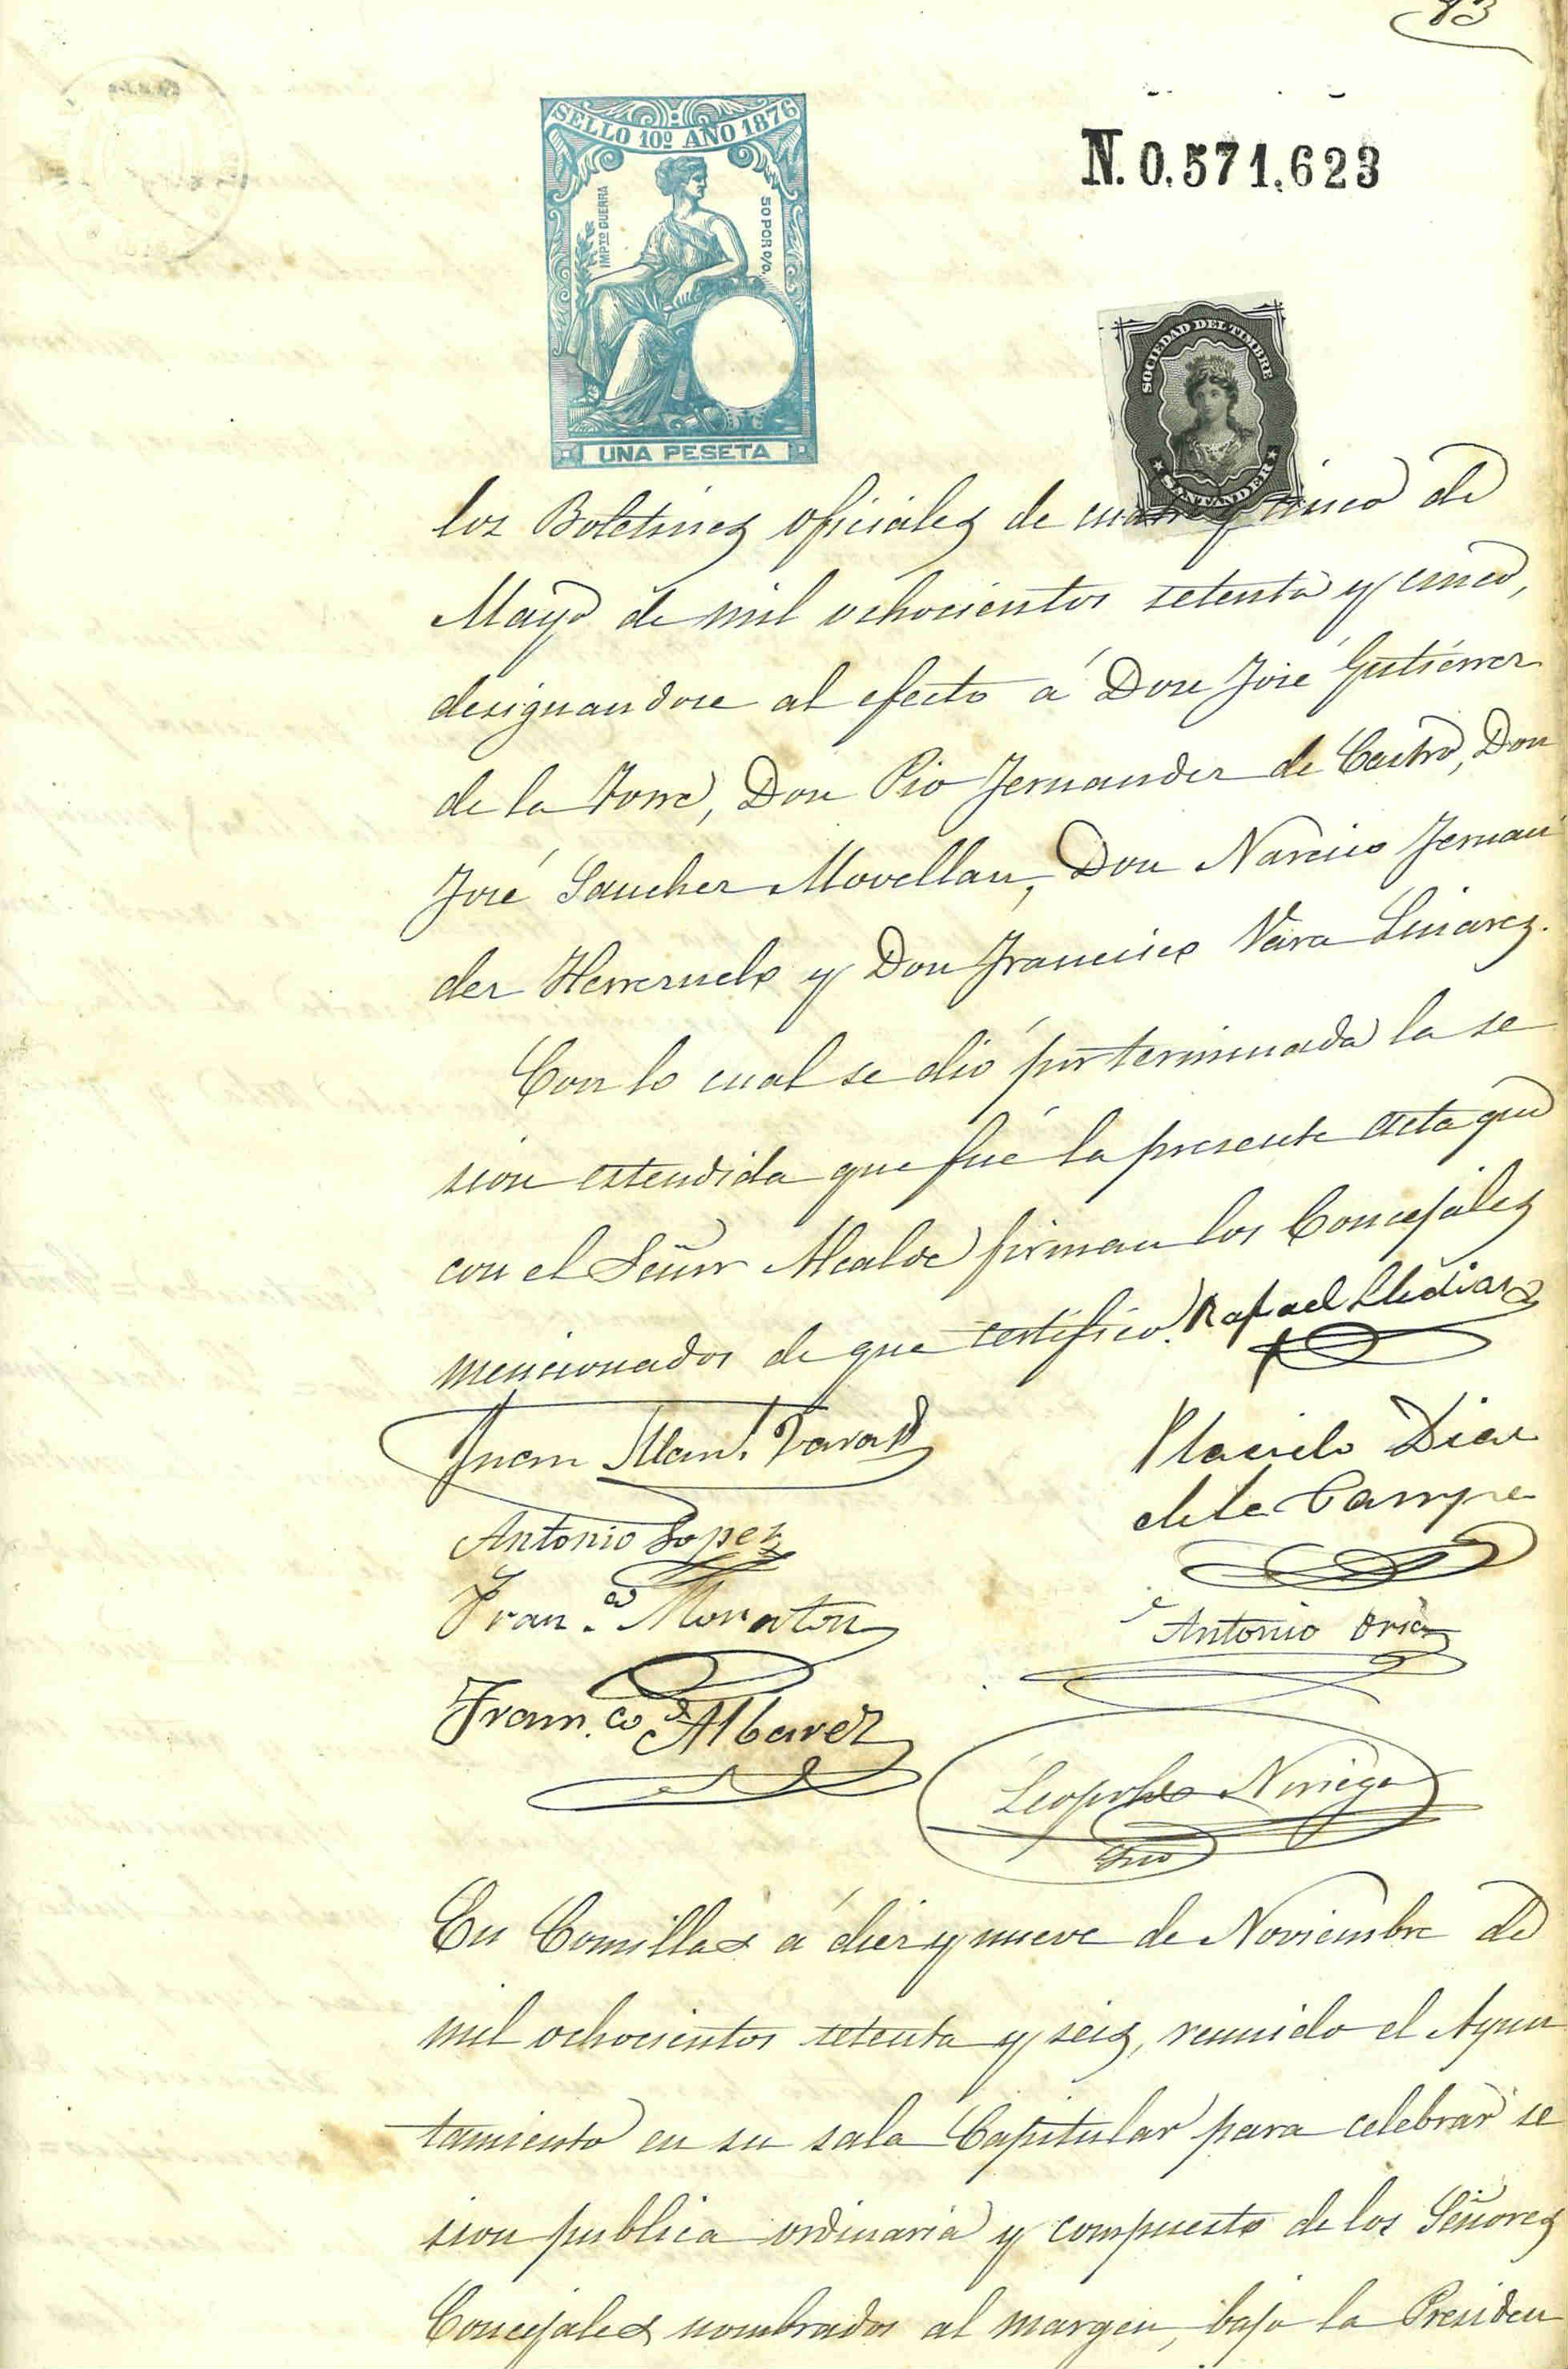 83
SELLO 10º AÑO 1876
IMPTO GUERRA
50 POR 0/0.
UNA PESETA
N. 0.571.623
SOCIEDAD DEL TIMBRE
SANTANDER
los Boletines oficiales de cuatro y cinco de
Mayo de mil ochocientos setenta y cinco,
designandose al efecto á Don José Gutiérrez
de la Torre, Don Pio Fernandez de Castro, Don
José Sanchez Movellan, Don Narciso Fernan
dez Herreruelo y Don Francisco Vara Linares.
Con lo cual se dió por terminada la se
sion estendida que fué la presente acta que
con el Señor Alcalde firman los Concejales
mencionados de que certifico. Rafael
Juan Man.l
Placido Diaz
de la Campa
Antonio Lopez
Fran.co Moraton
Antonio
Fran.co Albarez
Leopoldo Noriega
Srio
En Comillas á diez y nueve de Noviembre de
mil ochocientos setenta y seis, reunido el Ayun
tamiento en su sala Capitular para celebrar se
sion publica ordinaria y compuesto de los Señores
Concejales nombrados al margen, bajo la Presiden